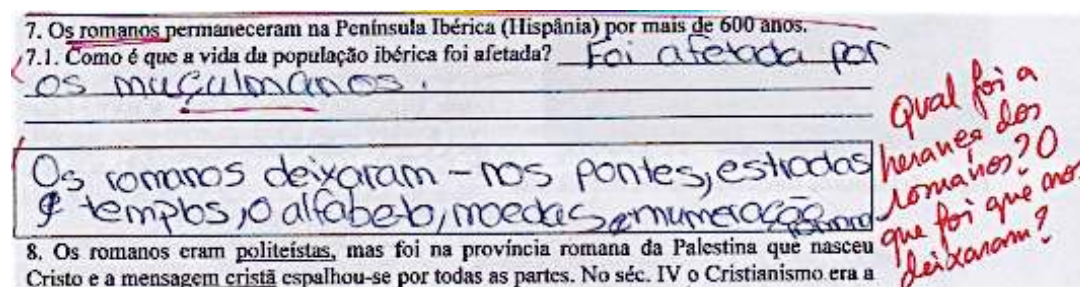 7. Os romanos permaneceram na Península Ibérica (Hispânia) por mais de 600 anos.
7.1. Como é que a vida da população ibérica foi afetada? Foi afetada por
os muçulmanos.
Os romanos deixaram-nos pontes, estradas
e templos, o alfabeto, moedas e numeração
Qual foi a
herança dos
romanos? O
que foi que nos
deixaram?
8. Os romanos eram politeístas, mas foi na província romana da Palestina que nasceu
Cristo e a mensagem cristã espalhou-se por todas as partes. No séc. IV o Cristianismo era a